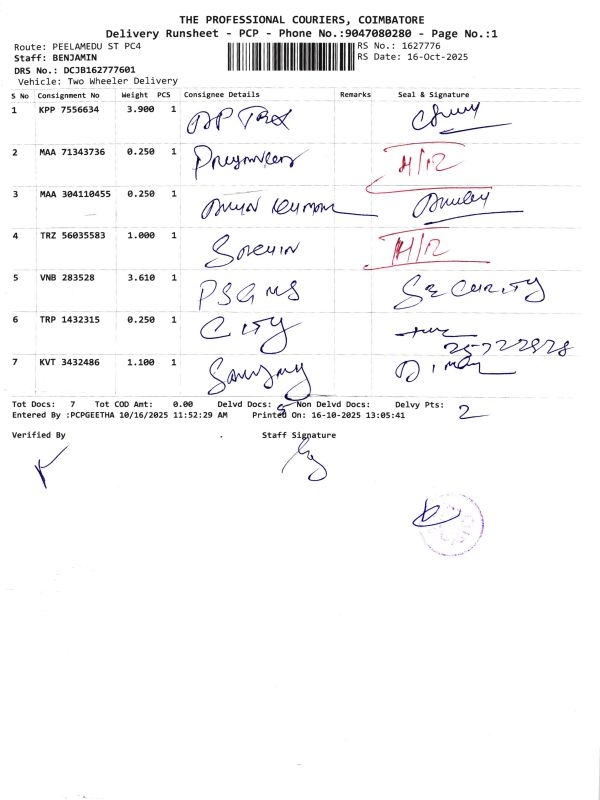 THE PROFESSIONAL COURIERS, COIMBATORE
Delivery Runsheet - PCP - Phone No.:9047080280 - Page No.:1
Route: PEELAMEDU ST PC4 RS No.: 1627776
Staff: BENJAMIN RS Date: 16-Oct-2025
DRS No.: DCJB162777601
Vehicle: Two Wheeler Delivery
S No Consignment No Weight PCS Consignee Details Remarks Seal & Signature
1 KPP 7556634 3.900 1 AP Trex
2 MAA 71343736 0.250 1 H/12
3 MAA 304110455 0.250 1
4 TRZ 56035583 1.000 1 H/12
5 VNB 283528 3.610 1 PSG MS SECURITY
6 TRP 1432315 0.250 1 CITY
7 KVT 3432486 1.100 1
Tot Docs: 7 Tot COD Amt: 0.00 Delvd Docs: 5 Non Delvd Docs: Delvy Pts: 2
Entered By :PCPGEETHA 10/16/2025 11:52:29 AM Printed On: 16-10-2025 13:05:41
Verified By . Staff Signature